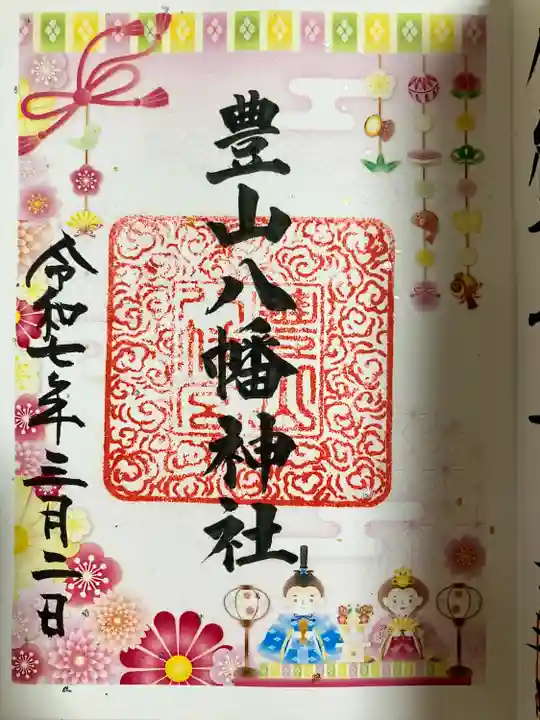 豊山八幡神社
令和七年三月二日